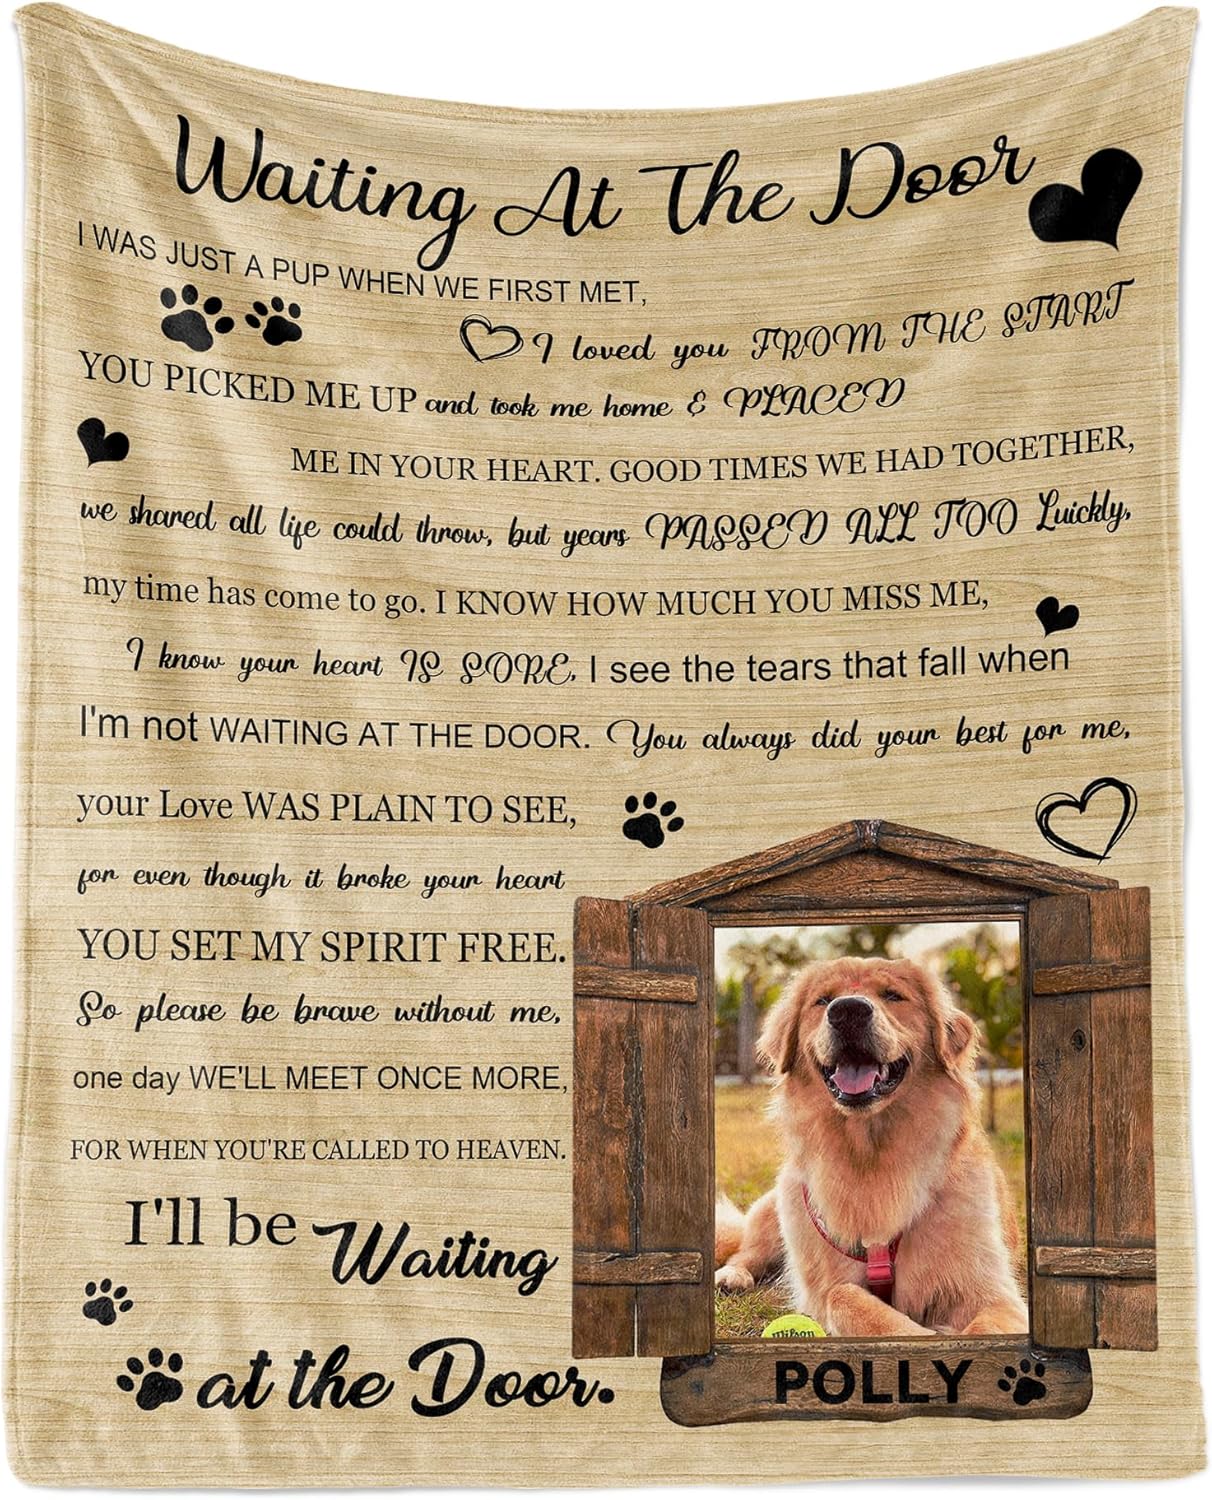 Waiting At The Door
I WAS JUST A PUP WHEN WE FIRST MET,
I loved you FROM THE START
YOU PICKED ME UP and took me home & PLACED
ME IN YOUR HEART. GOOD TIMES WE HAD TOGETHER,
we shared all life could throw, but years PASSED ALL TOO Luickly,
my time has come to go. I KNOW HOW MUCH YOU MISS ME,
I know your heart IS SORE. I see the tears that fall when
I'm not WAITING AT THE DOOR. You always did your best for me,
your Love WAS PLAIN TO SEE,
for even though it broke your heart
YOU SET MY SPIRIT FREE.
So please be brave without me,
one day WE'LL MEET ONCE MORE,
FOR WHEN YOU'RE CALLED TO HEAVEN.
I'll be Waiting
at the Door.
Wilson
POLLY